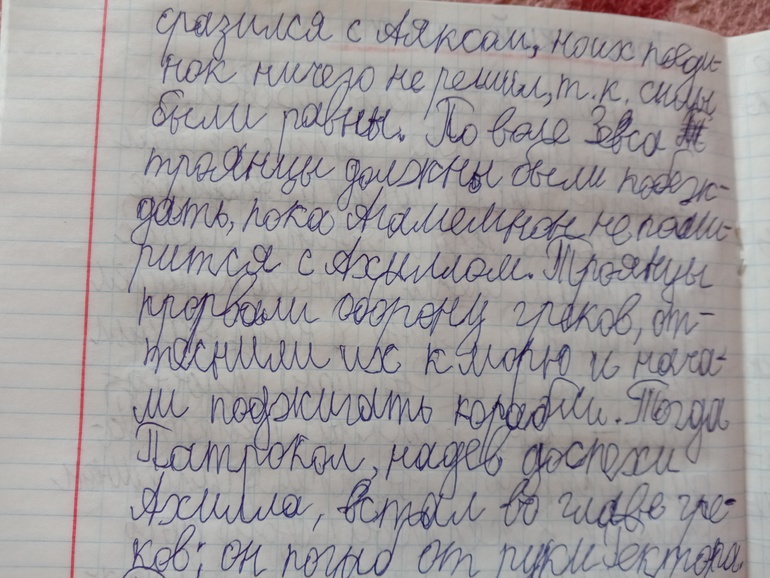 сразился с Аяксом, но их поеди-
нок ничего не решил, т.к. силы
были равны. По воле Зевса
троянцы должны были побеж-
дать, пока Агамемнон не поми-
рится с Ахыллом. Троянцы
прорвали оборону греков, от-
теснили их к морю и нача-
ли поджигать корабли. Тогда
Патрокл, надев доспехи
Ахилла, встал во главе гре-
ков; он погиб от руки Гектора.